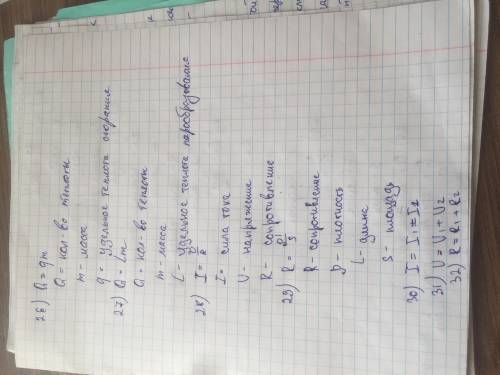 26) Q = qm
Q = кол-во теплоты
m - масса
q = удельное теплота сгорания
27) Q = Lm
Q = кол-во теплоты
m - масса
L - удельное теплота парообразования
28) I = U/R
I = сила тока
U - напряжение
R - сопротивление
29) R = ρl/S
R - сопротивление
ρ - плотность
L - длина
S - площадь
30) I = I₁ = I₂
31) U = U₁ + U₂
32) R = R₁ + R₂